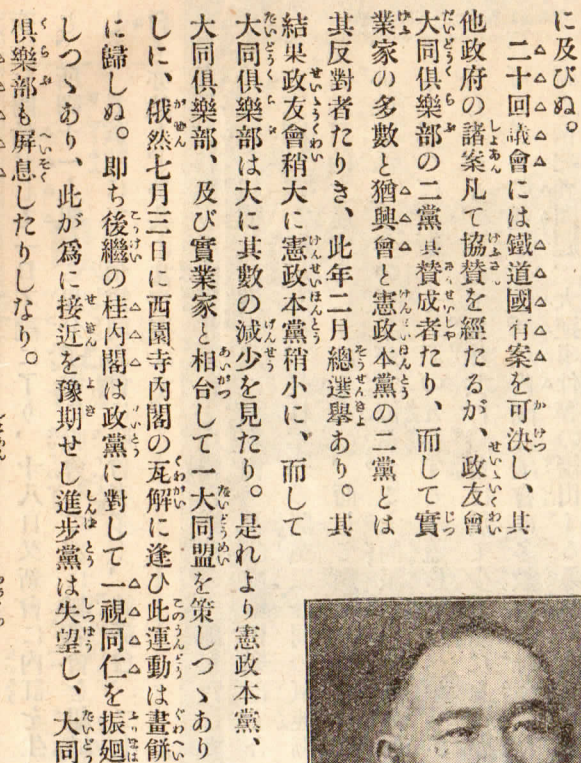 に及びぬ。
二十回議會には鐵道國有案を可決し、其
他政府の諸案凡て協賛を經たるが、政友會
大同倶樂部の二黨其賛成者たり、而して實
業家の多數と猶興會と憲政本黨の二黨とは
其反對者たりき、此年二月總選擧あり。其
結果政友會稍大に憲政本黨稍小に、而して
大同倶樂部は大に其數の減少を見たり。是れより憲政本黨、
大同倶樂部、及び實業家と相合して一大同盟を策しつゝあり
しに、俄然七月三日に西園寺内閣の瓦解に逢ひ此運動は畫餠
に歸しぬ。即ち後繼の桂内閣は政黨に對して一視同仁を振廻
しつゝあり、此が爲に接近を豫期せし進步黨は失望し、大同
倶樂部も屛息したりしなり。